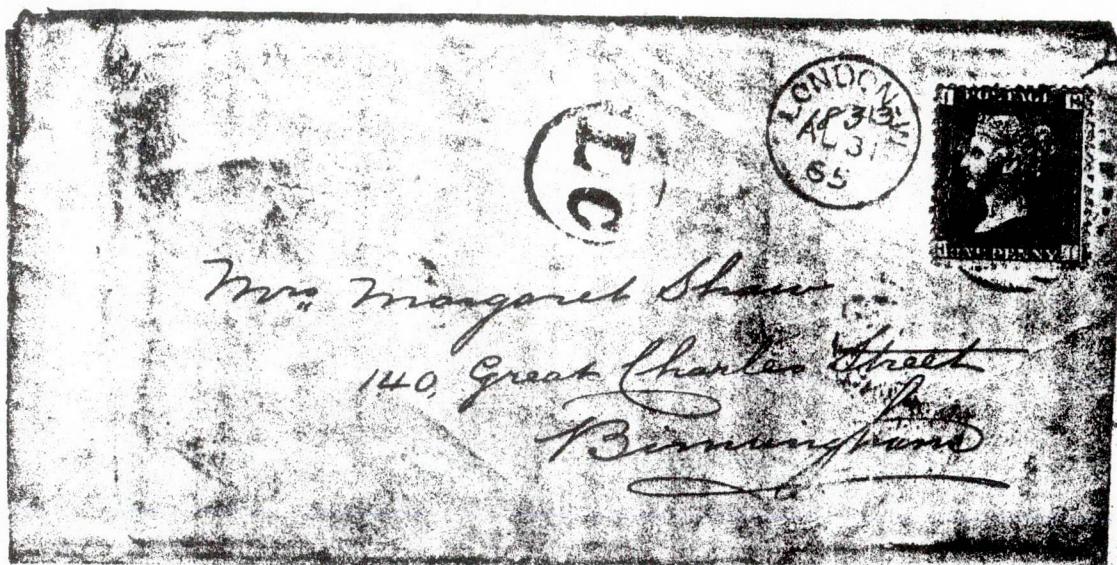 LC
LONDON-W
AP3
JL 31
65
POSTAGE
ONE PENNY
Mrs Margaret Shaw
140, Great Charles Street
Birmingham